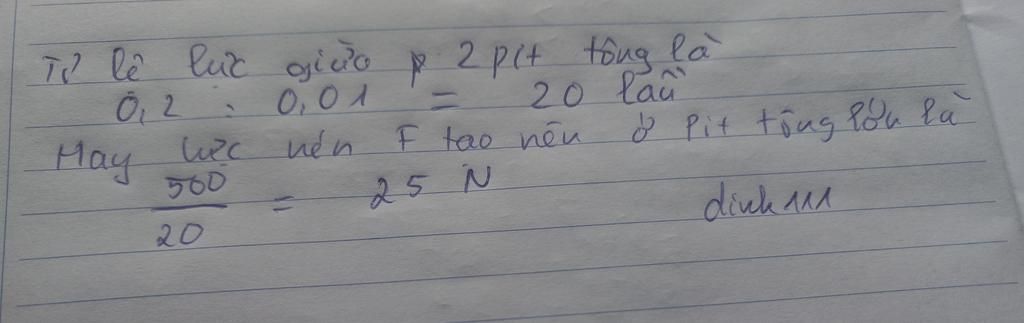 Tỉ lệ lực giữa 2 pít tông là
0,2 : 0,01 = 20 lần
Hay lực nén F tạo nên ở pit tông lớn là
500
20
= 25 N
dinh111